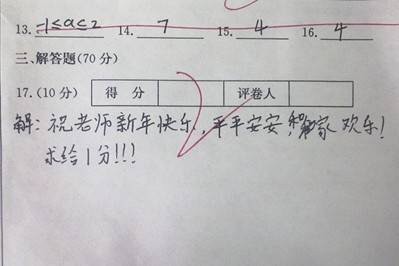 13. -1≤a≤2 14. 7 15. 4 16. 4
三、解答题(70分)
17.(10分) 得 分 评卷人
解:祝老师新年快乐,平平安安,和家欢乐!
求给1分!!!